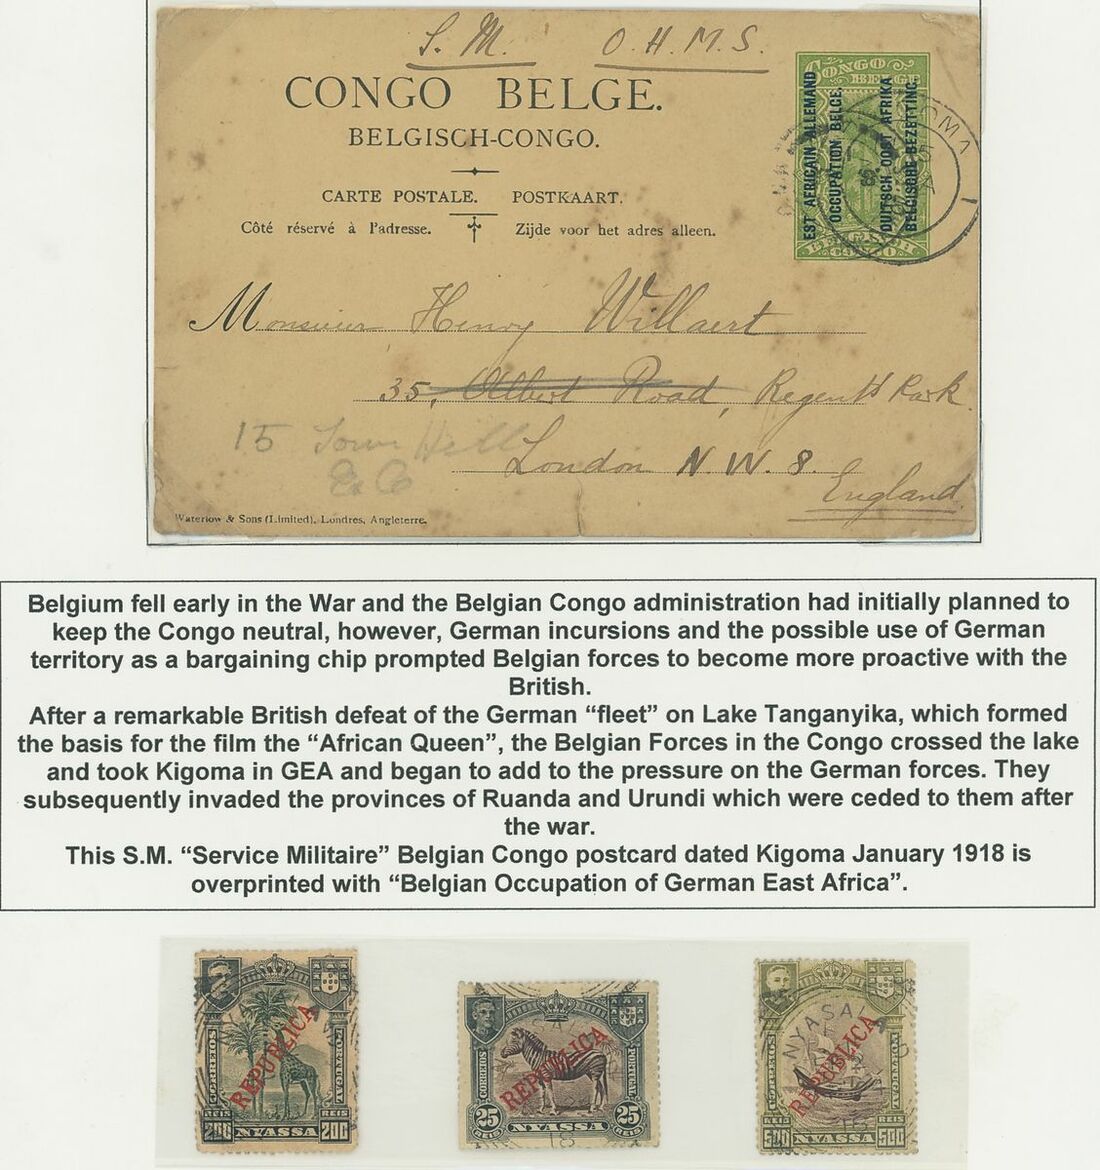 S.M. O.H.M.S.
CONGO BELGE.
BELGISCH-CONGO.
CARTE POSTALE. POSTKAART.
Côté réservé à l'adresse. Zijde voor het adres alleen.
CONGO
BELGE
EST AFRICAIN ALLEMAND
OCCUPATION BELGE.
DUITSCH OOST AFRIKA
BELGISCHE BEZETTING.
BELGISCH
CONGO
Monsieur Henry Willaert
35, Albert Road, Regent's Park.
15 Tower Hill
E.C
London N.W. 8.
England.
Waterlow & Sons (Limited), Londres, Angleterre.
Belgium fell early in the War and the Belgian Congo administration had initially planned to
keep the Congo neutral, however, German incursions and the possible use of German
territory as a bargaining chip prompted Belgian forces to become more proactive with the
British.
After a remarkable British defeat of the German “fleet” on Lake Tanganyika, which formed
the basis for the film the “African Queen”, the Belgian Forces in the Congo crossed the lake
and took Kigoma in GEA and began to add to the pressure on the German forces. They
subsequently invaded the provinces of Ruanda and Urundi which were ceded to them after
the war.
This S.M. “Service Militaire” Belgian Congo postcard dated Kigoma January 1918 is
overprinted with “Belgian Occupation of German East Africa”.
CORREIOS
PORTUGAL
REPUBLICA
REIS REIS
200 NYASSA 200
CORREIOS
PORTUGAL
REPUBLICA
25 25
REIS NYASSA REIS
CORREIOS
PORTUGAL
REPUBLICA
REIS REIS
500 NYASSA 500